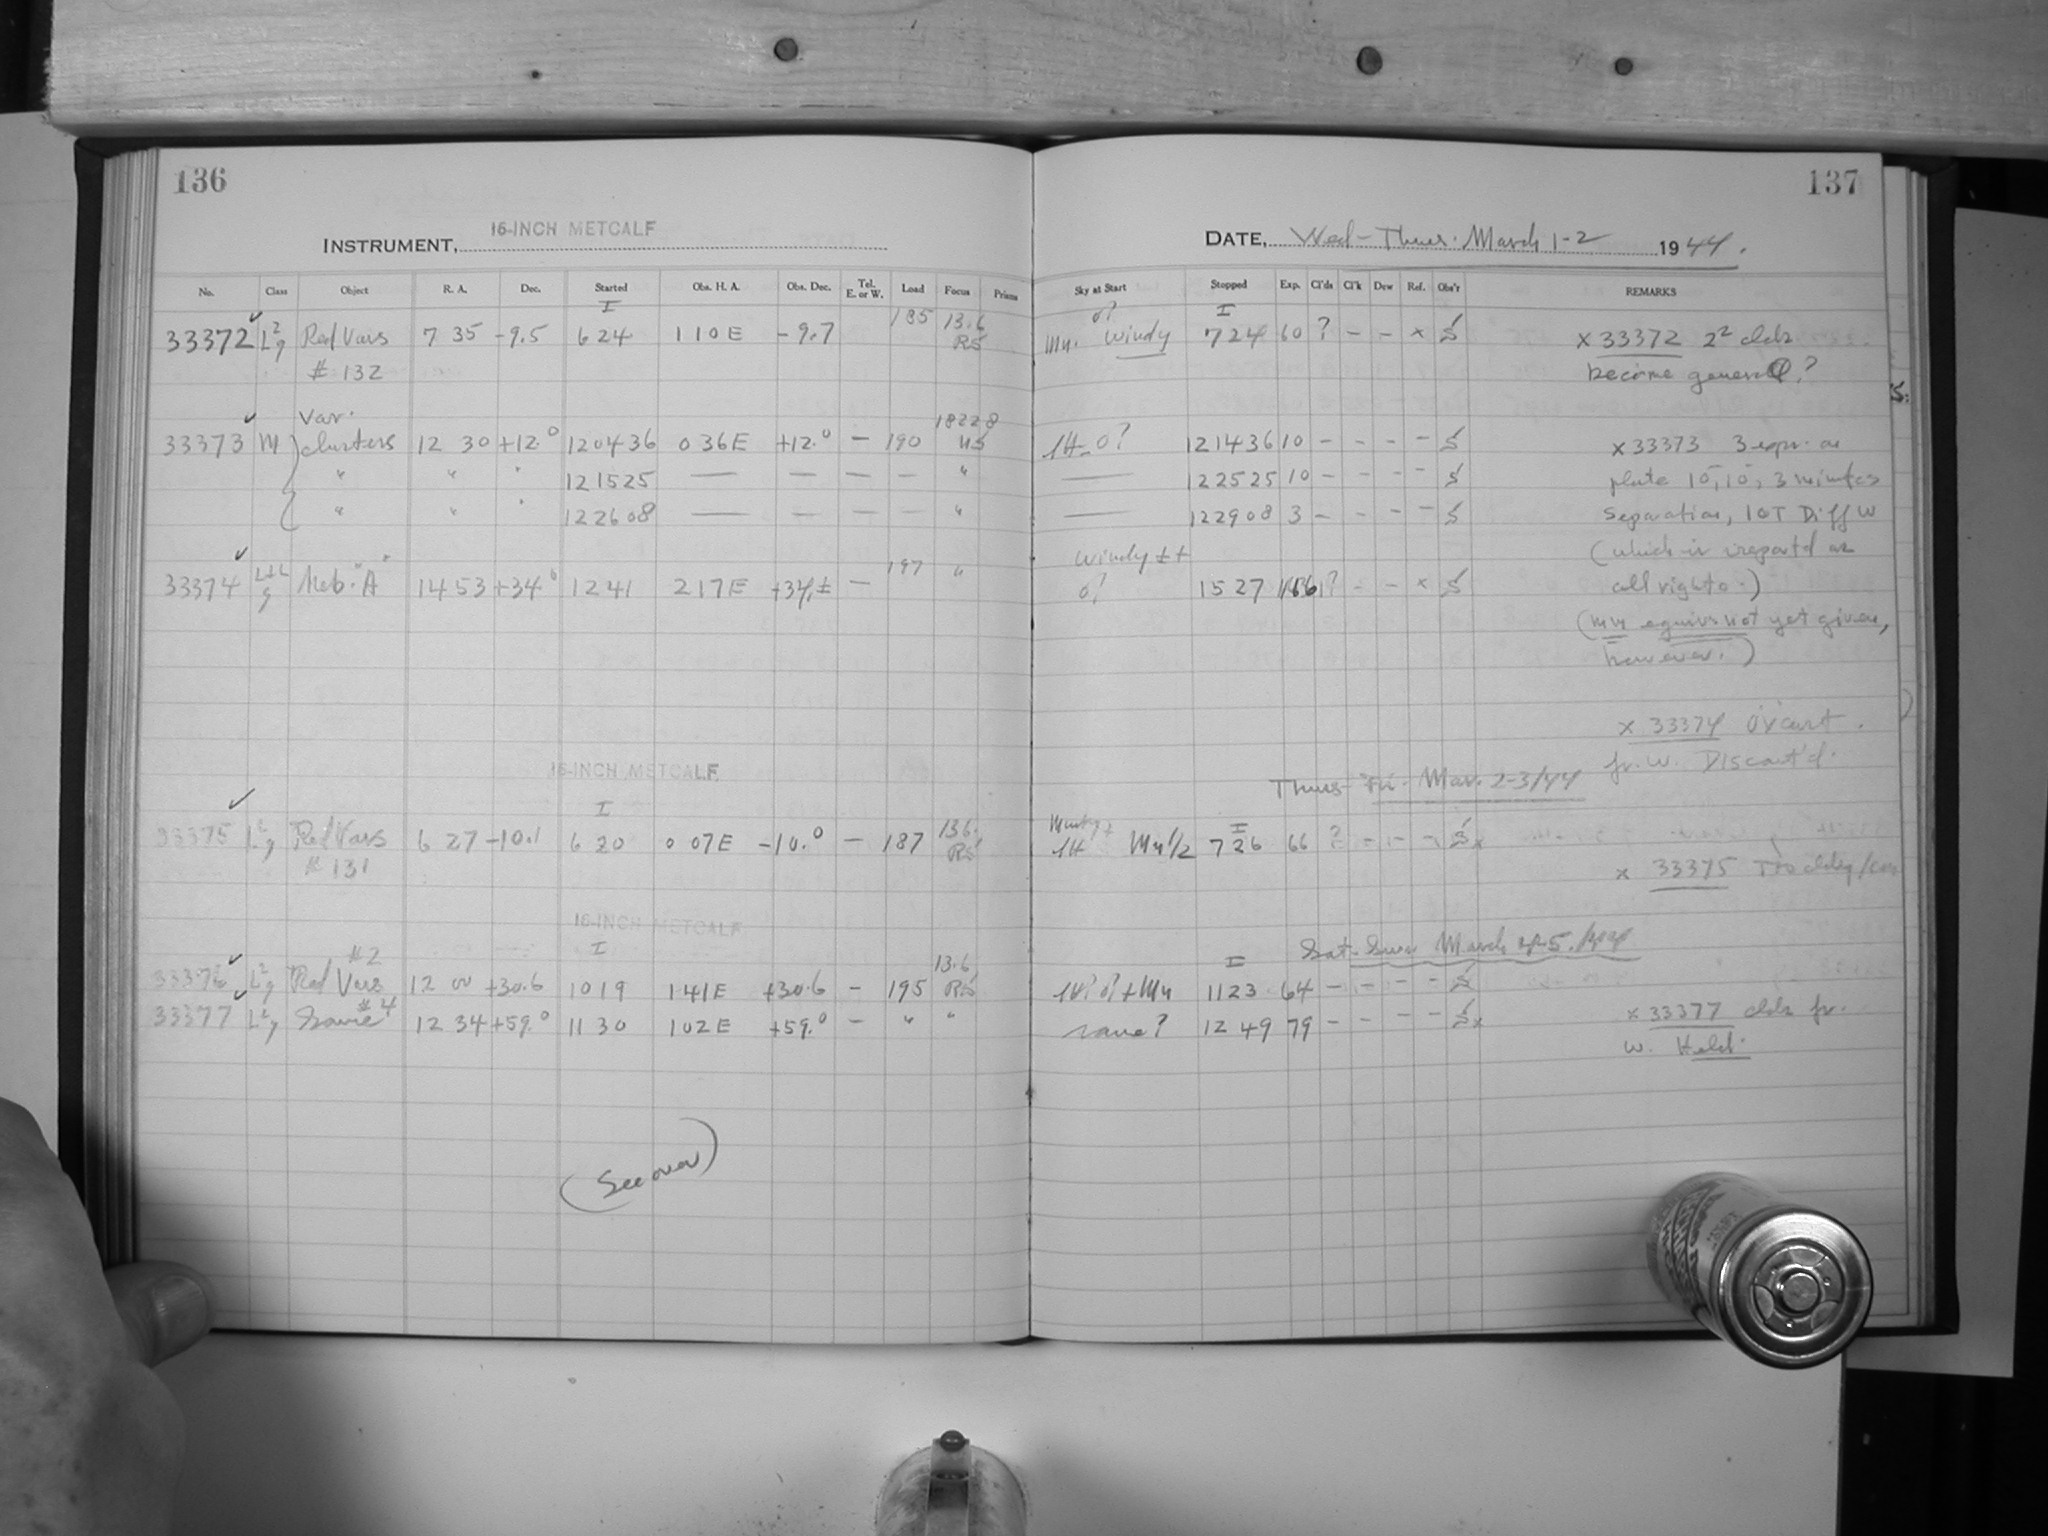 136
137
INSTRUMENT, 16-INCH METCALF
DATE, Wed-Thurs. March 1-2 1944.
No. Class Object R. A. Dec. Started Obs. H. A. Obs. Dec. Tel. E. or W. Load Focus Prisms Sky at Start Stopped Exp. Cl'ds Cl'k Dew Ref. Obs'r REMARKS
I o? I
33372 L2g Red Vars 7 35 -9.5 6 24 1 10 E -9.7 185 13.6 RS Mn. Windy 7 24 60 ? - - x S x 33372 2² clds
# 132 become general?
Var.
33373 M clusters 12 30 +12.0 12 04 36 0 36 E +12.0 - 190 18228 HS 1H. o? 12 14 36 10 - - - - S x 33373 3 exps. on
" " " 12 15 25 — — — — " — 12 25 25 10 - - - - S plate 10, 10, 3 minutes
" " " 12 26 08 — — — — " — 12 29 08 3 - - - - S Separation, 10T Diff W
Windy ++ (which is reported as
33374 L+L g Neb. "A" 14 53 +34.0 12 41 2 17 E +34.± - 197 " o? 15 27 166 ? - - x S all right.)
(Mn equivs not yet given,
however.)
x 33374
fr. W. Discont'd.
16-INCH METCALF
Thurs-Fri. Mar. 2-3/44
I I
33375 L2g Red Vars 6 27 -10.1 6 20 0 07 E -10.0 - 187 13.6 RS 1H Mn 1/2 7 26 66 ? - - - S x
# 131 x 33375 Too cldy
16-INCH METCALF
Sat-Sun March 4-5./44
#2 I I
33376 L2g Red Vars 12 00 +30.6 10 19 1 41 E +30.6 - 195 13.6 RS 1H? o? + Mn 11 23 64 - - - - S
33377 L2g Same #4 12 34 +59.0 11 30 1 02 E +59.0 - " " same? 12 49 79 - - - - S x x 33377 clds fr.
W. Held.
(See over)